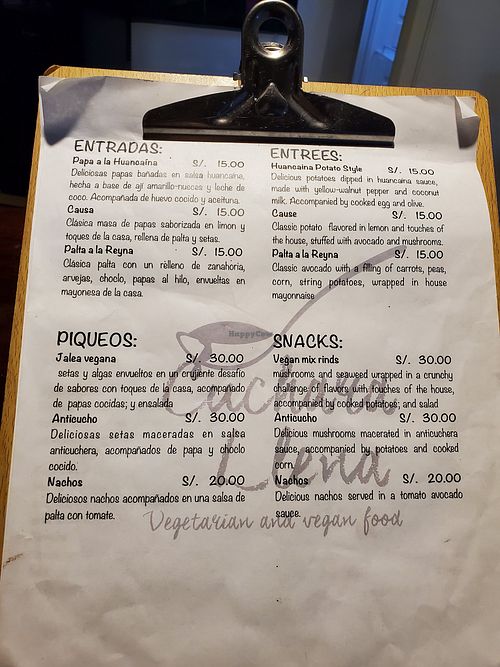 ENTRADAS:
Papa a la Huancaína S/. 15.00
Deliciosas papas bañadas en salsa huancaína,
hecha a base de ají amarillo-nueces y leche de
coco. Acompañada de huevo cocido y aceituna.
Causa S/. 15.00
Clásica masa de papas saborizada en limon y
toques de la casa, rellena de palta y setas.
Palta a la Reyna S/. 15.00
Clásica palta con un rélleno de zanahoria,
arvejas, choclo, papas al hilo, envueltas en
mayonesa de la casa.
PIQUEOS:
Jalea vegana S/. 30.00
setas y algas envueltos en un crujiente desafío
de sabores con toques de la casa, acompañado
de papas cocidas; y ensalada
Anticucho S/. 30.00
Deliciosas setas maceradas en salsa
anticuchera, acompañados de papa y choclo
cocido.
Nachos S/. 20.00
Deliciosos nachos acompañados en una salsa de
palta con tomate.
ENTREES:
Huancaina Potato Style S/. 15.00
Delicious potatoes dipped in huancaina sauce,
made with yellow-walnut pepper and coconut
milk. Accompanied by cooked egg and olive.
Cause S/. 15.00
Classic potato flavored in lemon and touches of
the house, stuffed with avocado and mushrooms.
Palta a la Reyna S/. 15.00
Classic avocado with a filling of carrots, peas,
corn, string potatoes, wrapped in house
mayonnaise
SNACKS:
Vegan mix rinds S/. 30.00
mushrooms and seaweed wrapped in a crunchy
challenge of flavors with touches of the house,
accompanied by cooked potatoes; and salad
Anticucho S/. 30.00
Delicious mushrooms macerated in anticuchera
sauce, accompanied by potatoes and cooked
corn.
Nachos S/. 20.00
Delicious nachos served in a tomato avocado
sauce.
Cuchara
Llena
Vegetarian and vegan food
HappyCow